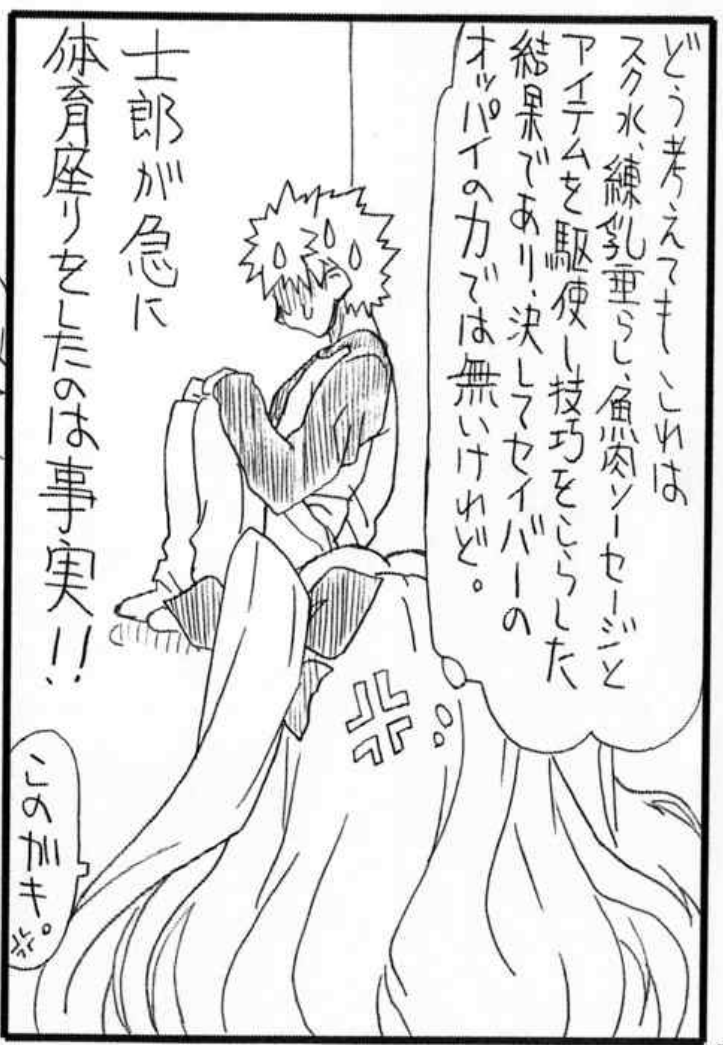 どう考えてもこれは
スク水、練乳垂らし、魚肉ソーセージと
アイテムを駆使し技巧をこらした
結果であり、決してセイバーの
オッパイの力では無いけれど。
士郎が急に
体育座りをしたのは事実!!
このガキ。